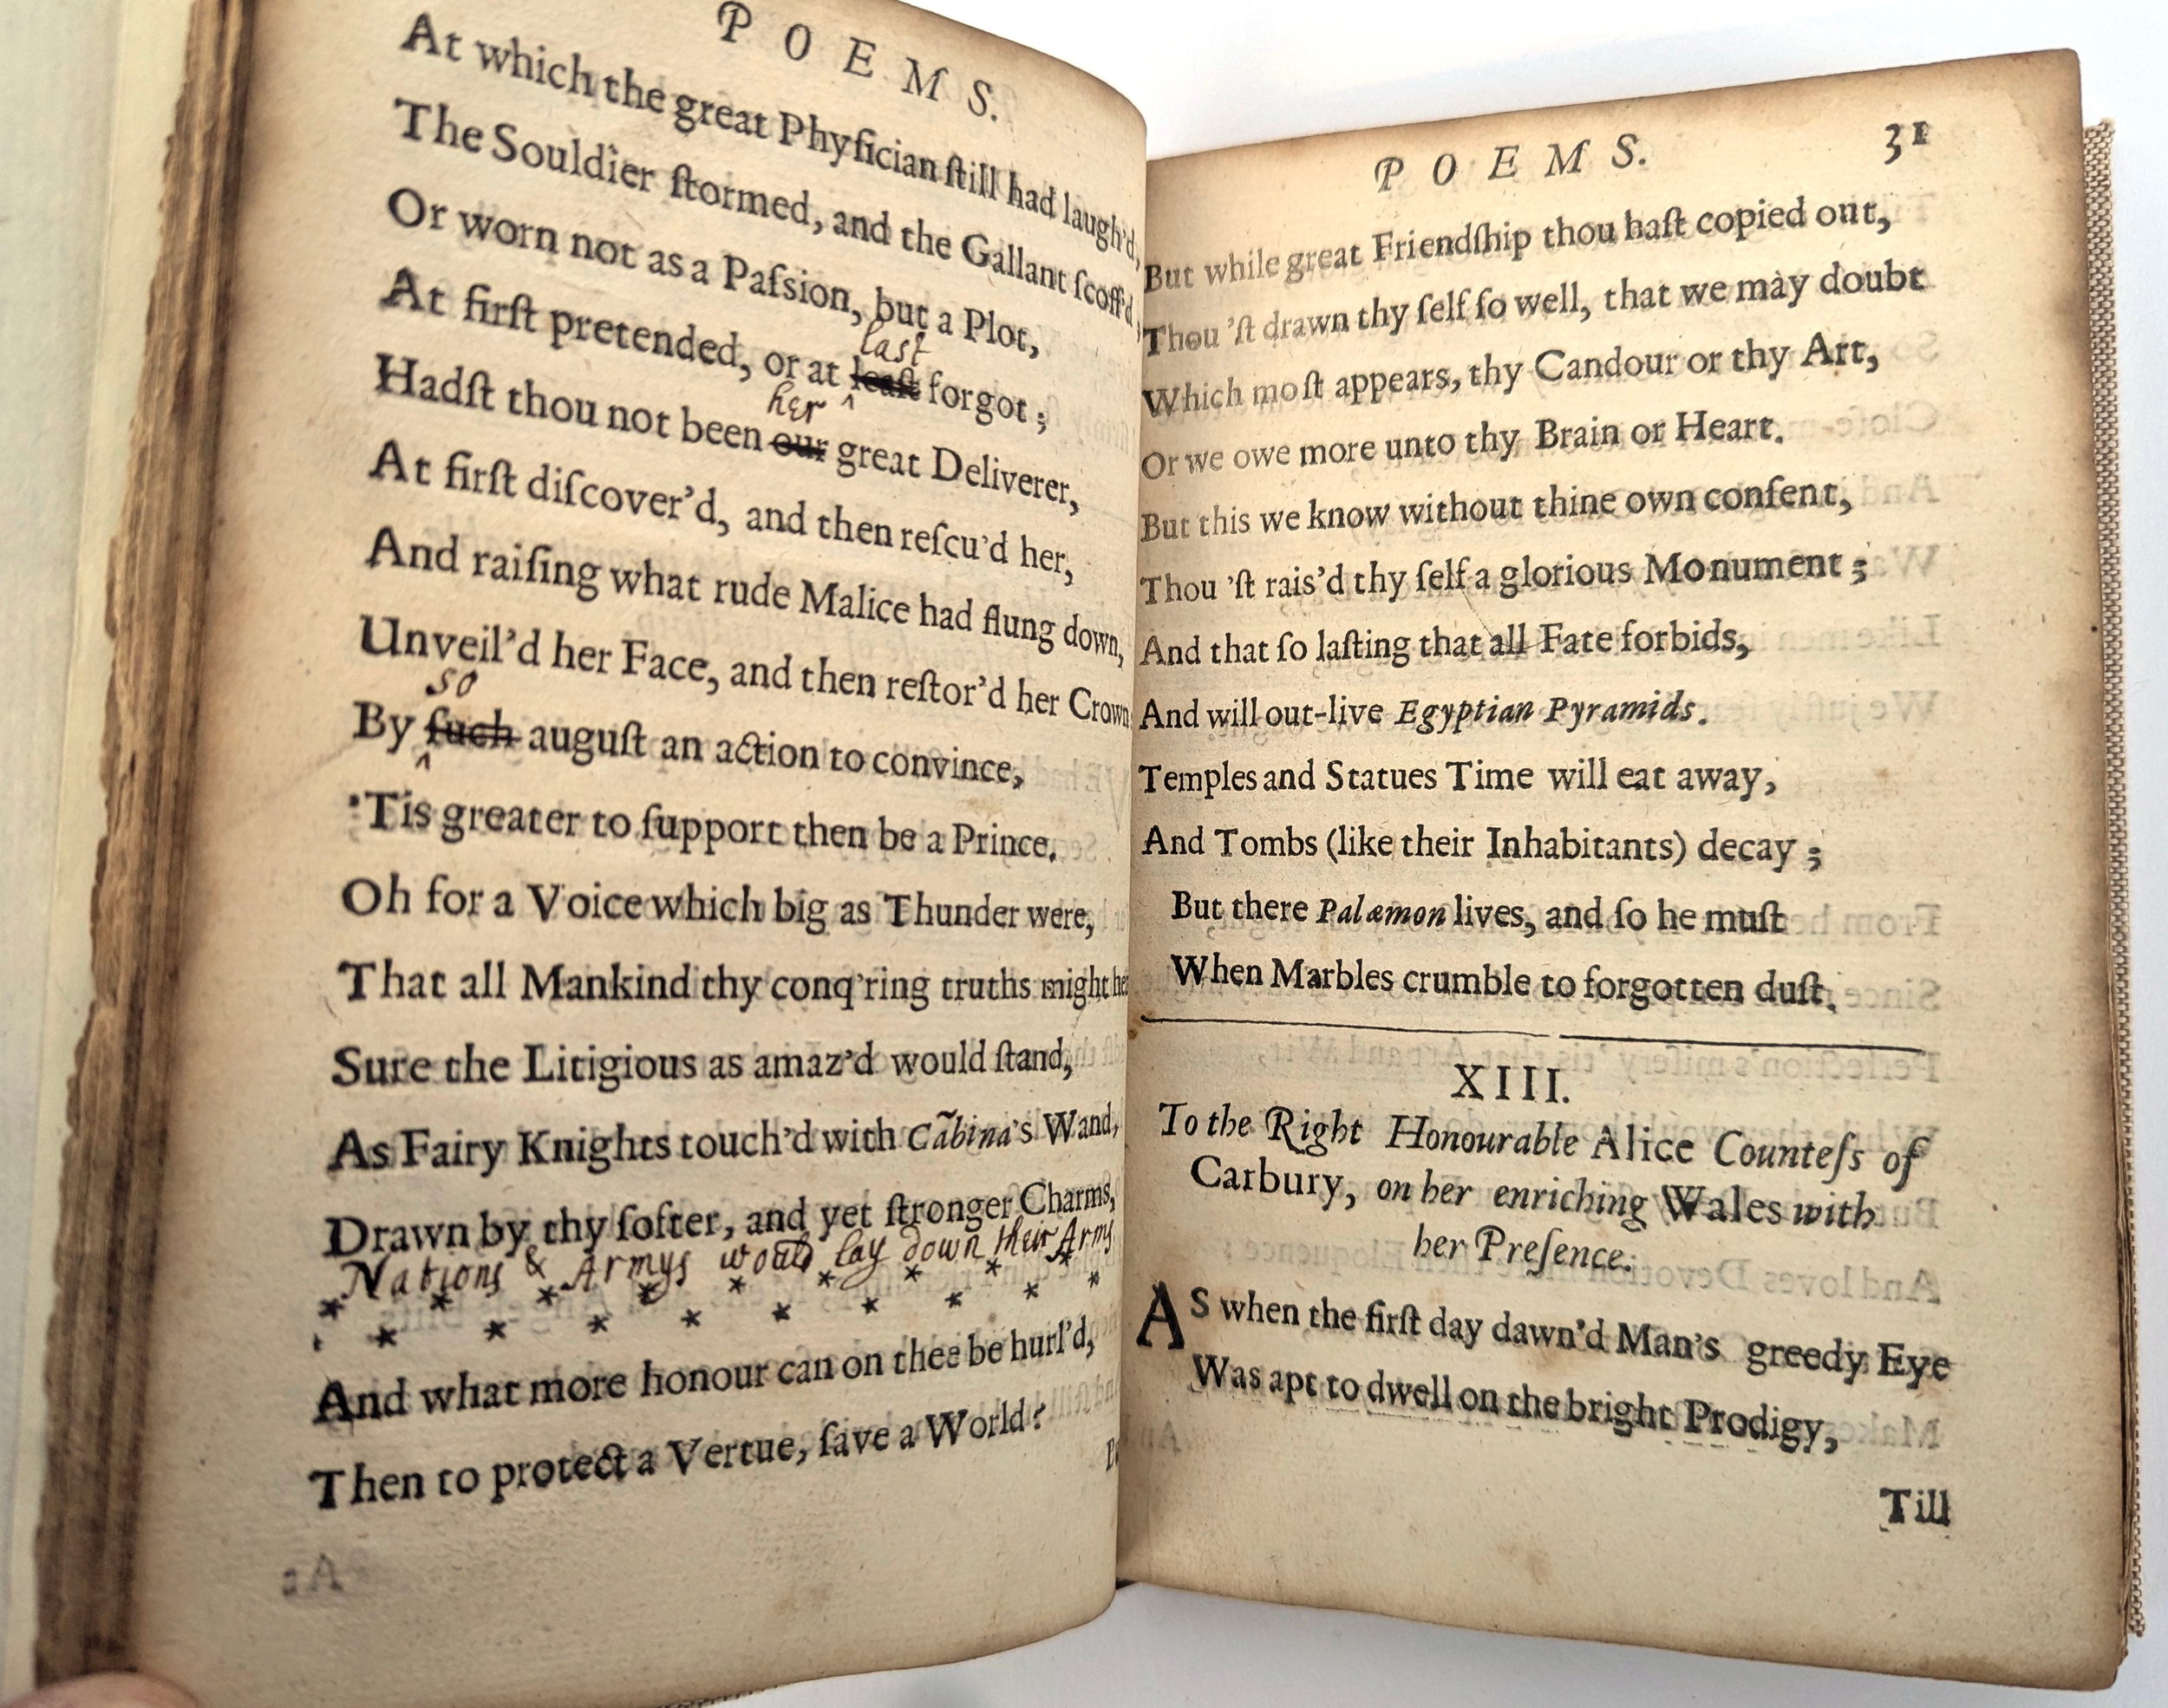 POEMS.
At which the great Phyſician ſtill had laugh'd,
The Souldier ſtormed, and the Gallant ſcoff'd,
Or worn not as a Paſsion, but a Plot,
last
At firſt pretended, or at leaſt forgot;
her
Hadſt thou not been our great Deliverer,
At firſt diſcover'd, and then reſcu'd her,
And raiſing what rude Malice had flung down,
Unveil'd her Face, and then reſtor'd her Crown
so
By ſuch auguſt an action to convince,
'Tis greater to ſupport then be a Prince.
Oh for a Voice which big as Thunder were,
That all Mankind thy conq'ring truths might he
Sure the Litigious as amaz'd would ſtand,
As Fairy Knights touch'd with Cãbina's Wand,
Drawn by thy ſofter, and yet ſtronger Charms,
Nations & Armys would lay down their Arms
* * * * * * * * *
* * * * * * * * *
And what more honour can on thee be hurl'd,
Then to protect a Vertue, ſave a World?
POEMS. 31
But while great Friendſhip thou haſt copied out,
Thou'ſt drawn thy ſelf ſo well, that we may doubt
Which moſt appears, thy Candour or thy Art,
Or we owe more unto thy Brain or Heart.
But this we know without thine own conſent,
Thou'ſt rais'd thy ſelf a glorious Monument;
And that ſo laſting that all Fate forbids,
And will out-live Egyptian Pyramids.
Temples and Statues Time will eat away,
And Tombs (like their Inhabitants) decay;
But there Palæmon lives, and ſo he muſt
When Marbles crumble to forgotten duſt.
XIII.
To the Right Honourable Alice Counteſs of
Carbury, on her enriching Wales with
her Preſence.
AS when the firſt day dawn'd Man's greedy Eye
Was apt to dwell on the bright Prodigy,
Till